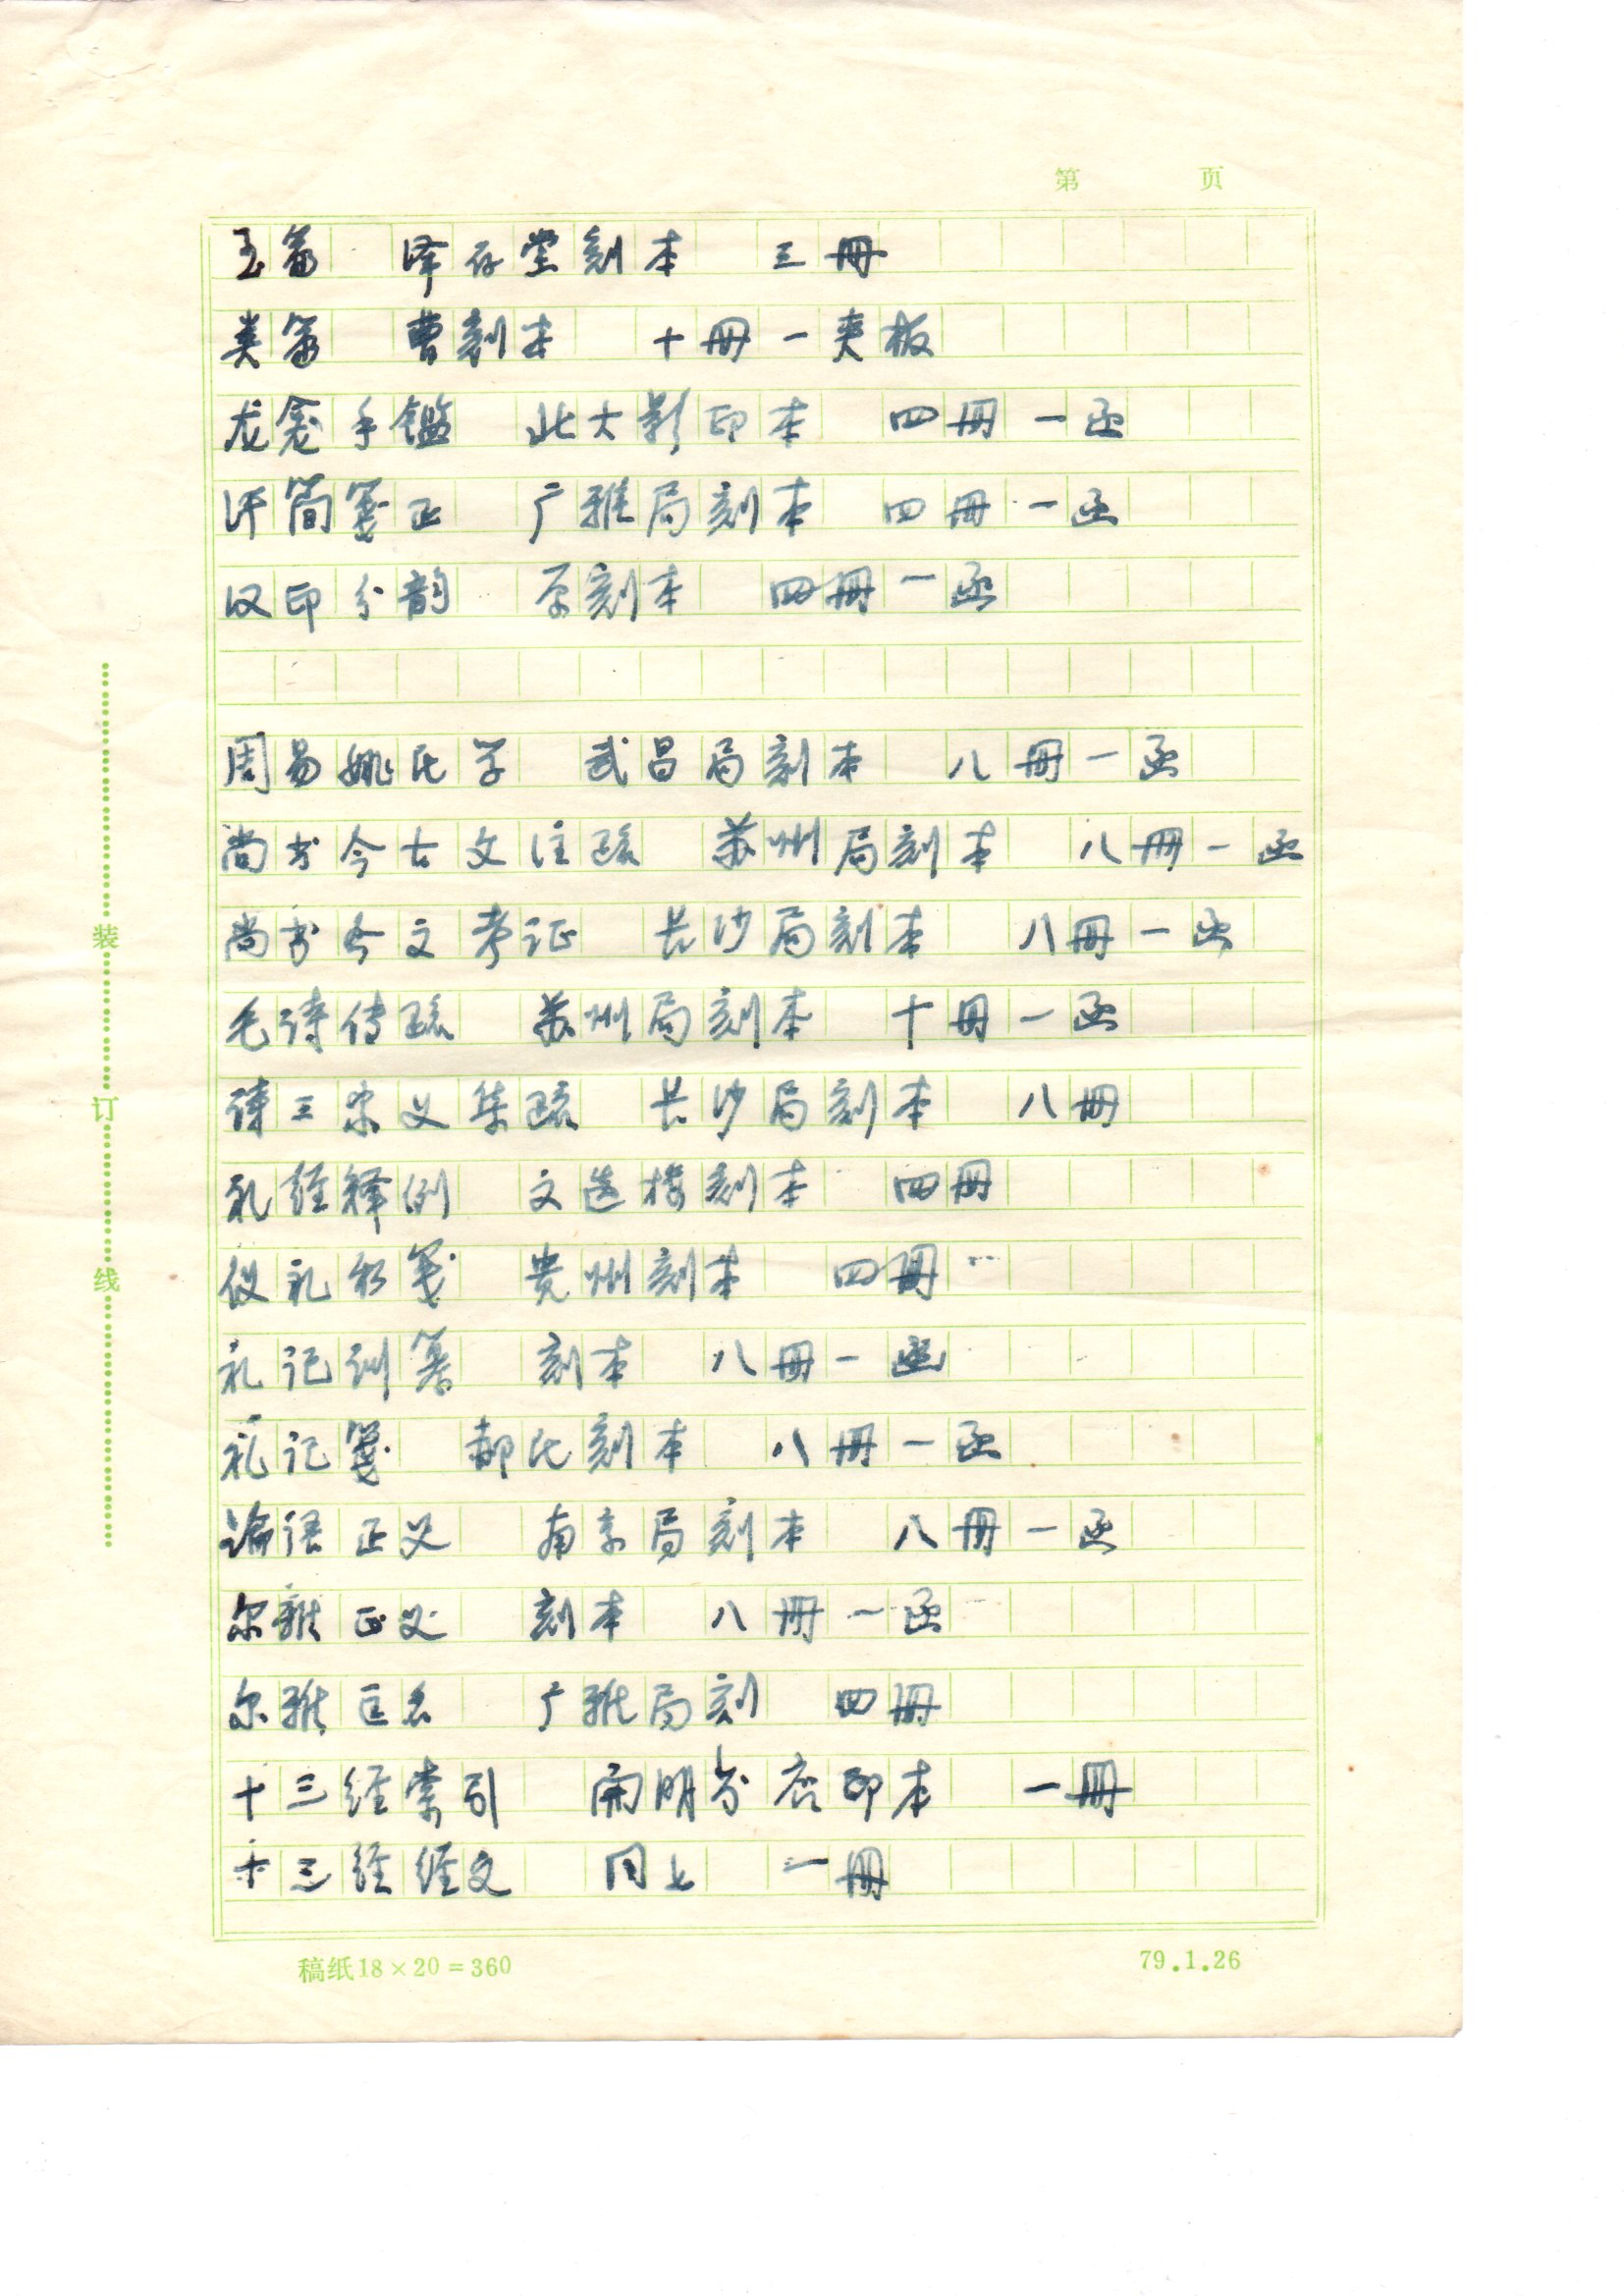 第 页
玉篇 泽存堂刻本 三册
类篇 曹刻本 十册一夹板
龙龛手鑑 北大影印本 四册一函
汗简笺正 广雅局刻本 四册一函
汉印分韵 原刻本 四册一函
周易姚氏学 武昌局刻本 八册一函
尚书今古文注疏 苏州局刻本 八册一函
尚书今文考证 长沙局刻本 八册一函
毛诗传疏 苏州局刻本 十册一函
诗三家义集疏 长沙局刻本 八册
礼经释例 文选楼刻本 四册
仪礼私笺 贵州刻本 四册
礼记训纂 刻本 八册一函
礼记笺 郝氏刻本 八册一函
论语正义 南京局刻本 八册一函
尔雅正义 刻本 八册一函
尔雅匡名 广雅局刻 四册
十三经索引 开明书店印本 一册
十三经经文 同上 一册
装订线
稿纸18×20=360 79.1.26